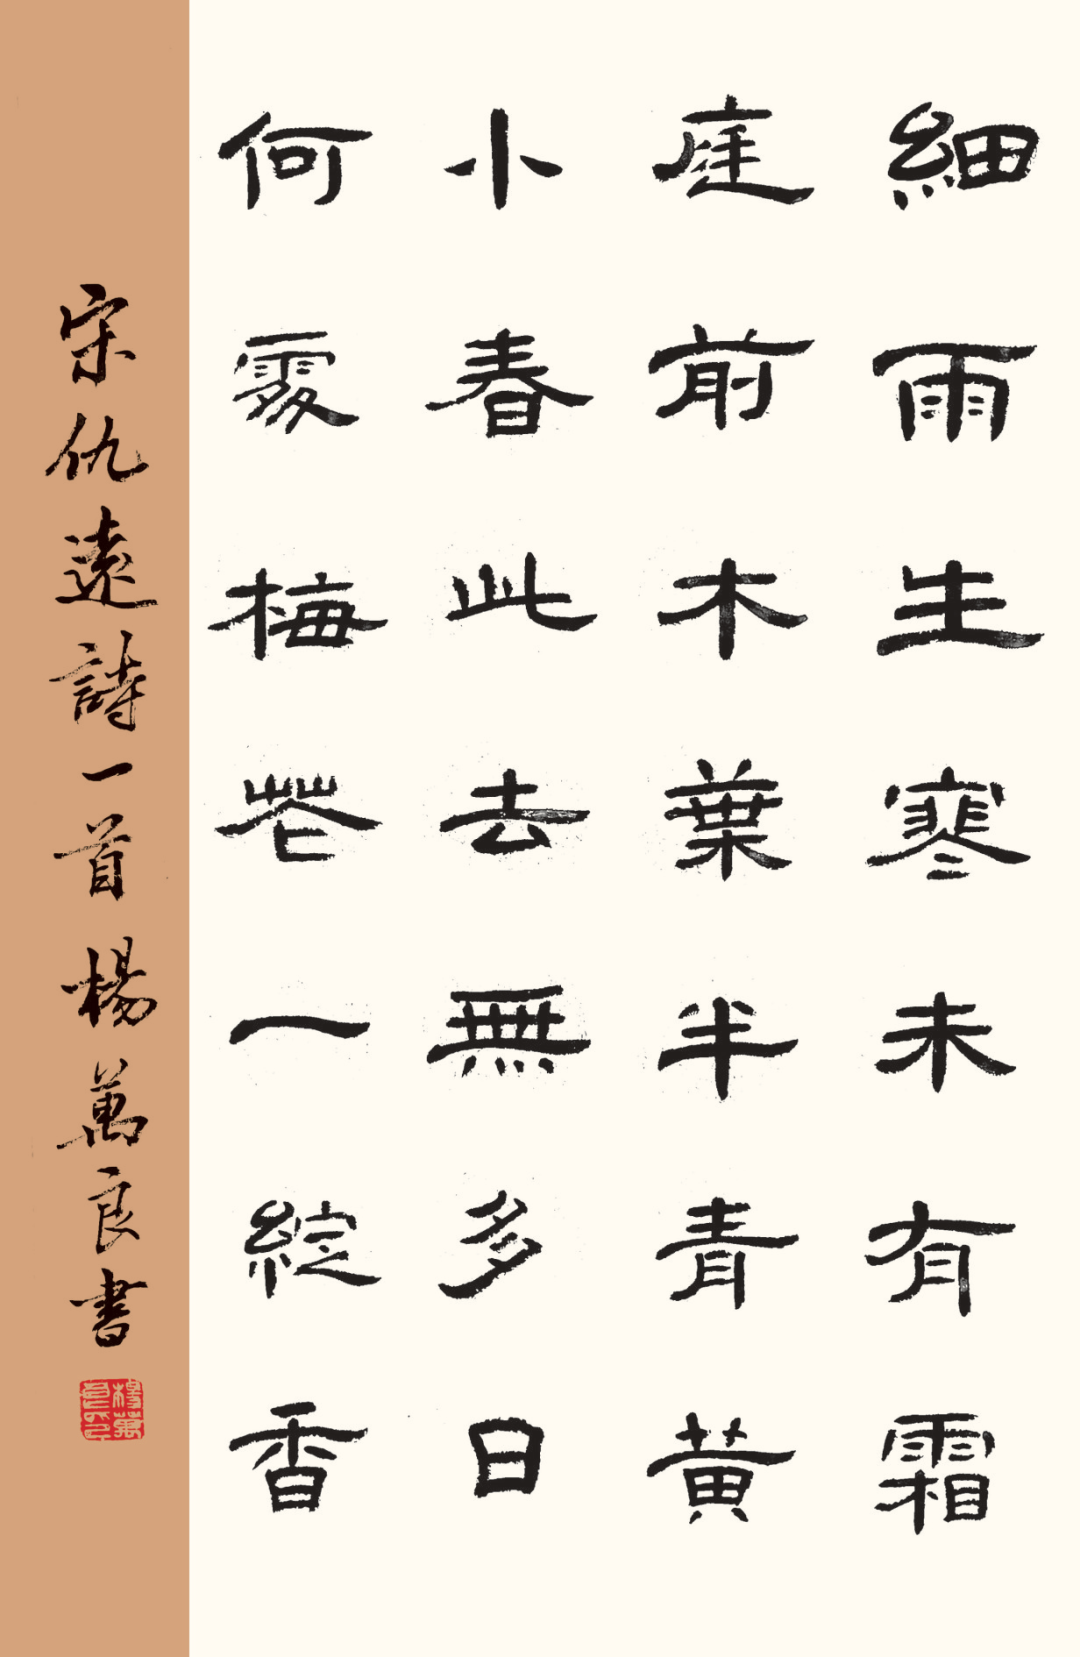 細雨生寒未有霜
庭前木葉半青黄
小春此去無多日
何處梅花一綻香
宋仇遠詩一首楊萬良書
楊萬良印